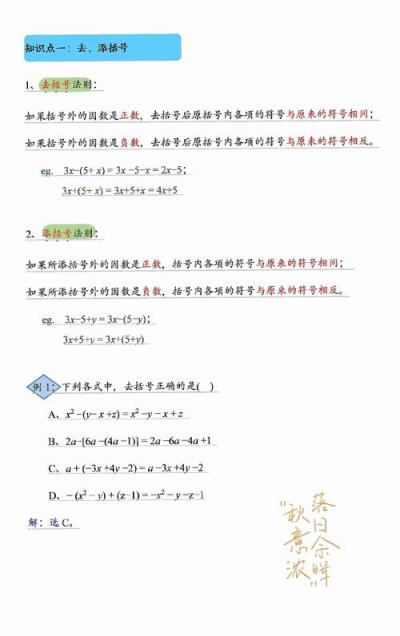 知识点一：去、添括号
1、去括号法则：
如果括号外的因数是正数，去括号后原括号内各项的符号与原来的符号相同；
如果括号外的因数是负数，去括号后原括号内各项的符号与原来的符号相反。
eg. 3x−(5+x) = 3x −5−x = 2x−5；
3x+(5+x) = 3x+5+x = 4x+5
2、添括号法则：
如果所添括号外的因数是正数，括号内各项的符号与原来的符号相同；
如果所添括号外的因数是负数，括号内各项的符号与原来的符号相反。
eg. 3x−5+y = 3x−(5−y)；
3x+5+y = 3x+(5+y)
例1：下列各式中，去括号正确的是( )
A、x²−(y−x+z) = x²−y−x+z
B、2a−[6a−(4a−1)] = 2a−6a−4a+1
C、a+(−3x+4y−2) = a−3x+4y−2
D、−(x²−y)+(z−1) = −x²−y−z−1
解：选C。
落日余晖”
“秋意浓